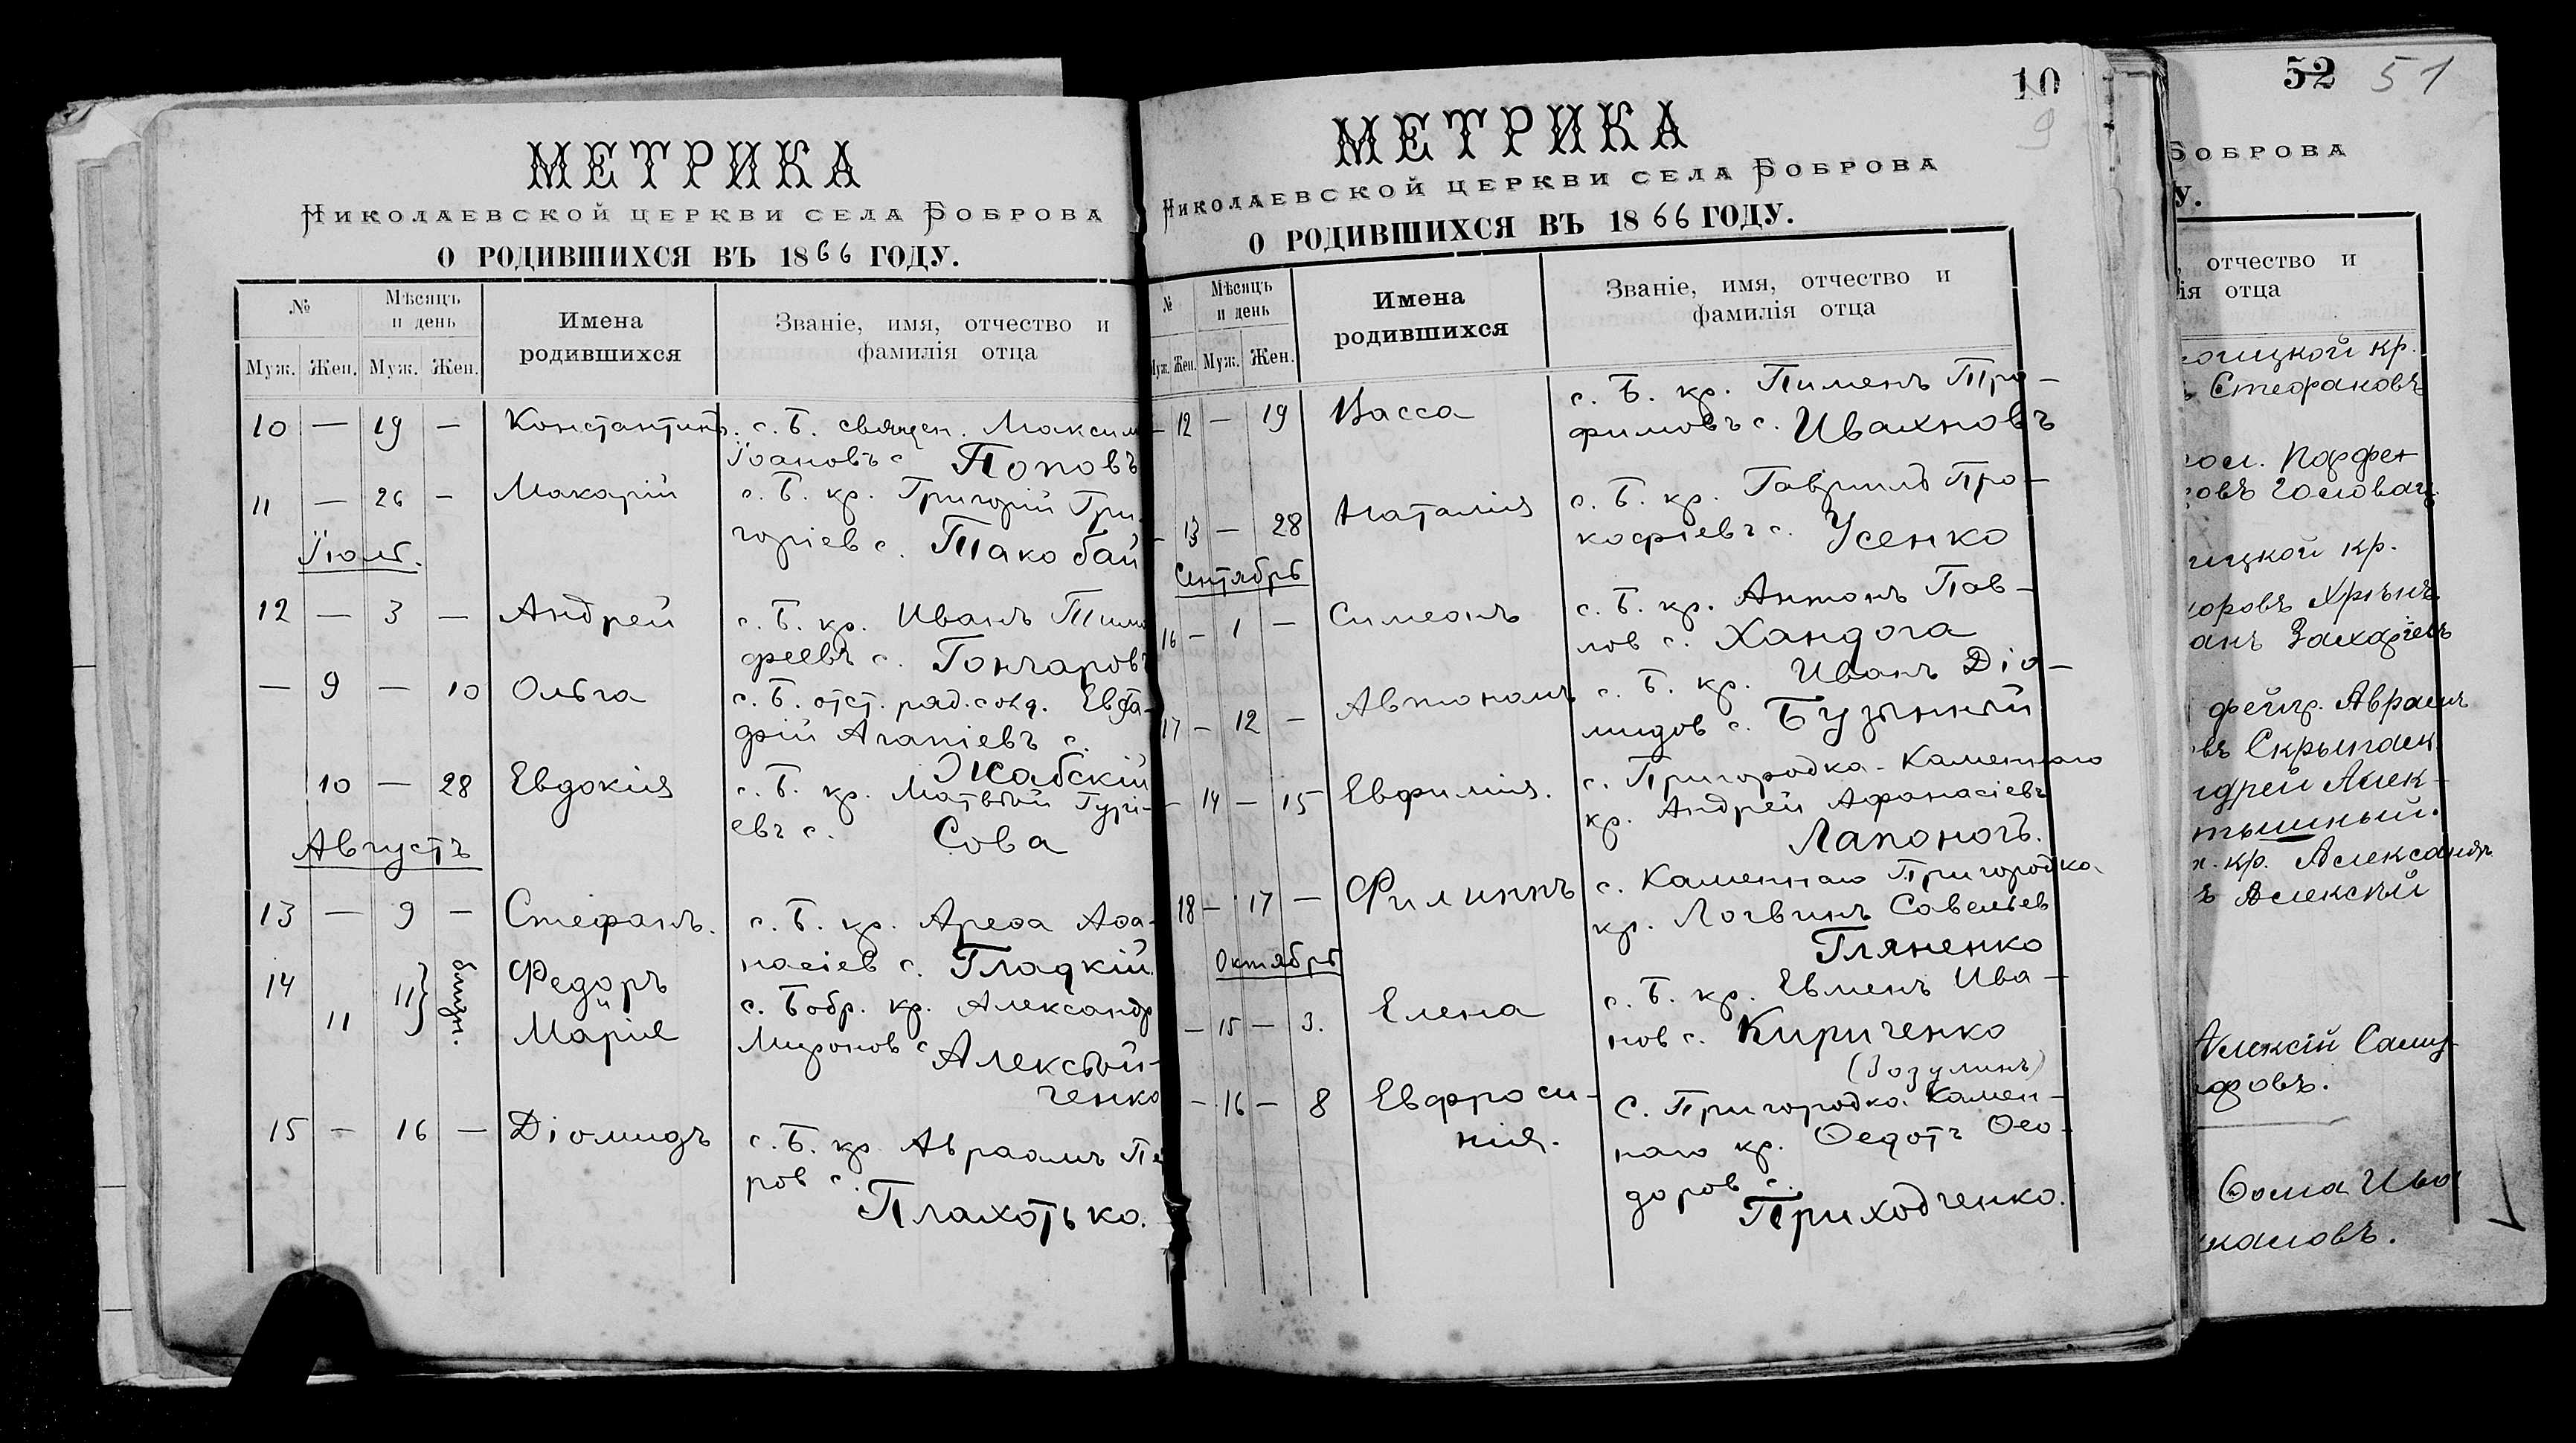 МЕТРИКА
НИКОЛАЕВСКОЙ ЦЕРКВИ СЕЛА БОБРОВА
О РОДИВШИХСЯ ВЪ 1866 ГОДУ.
№
Мѣсяцъ и день
Имена родившихся
Званіе, имя, отчество и фамилія отца
Муж. Жен. Муж. Жен.
10 — 19 — Константинъ. с. Б. священ. Максим
Іоановъ с. Поповъ
11 — 26 — Макарій с. Б. кр. Григорій Гри-
горіев с. Такобай
Іюль.
12 — 3 — Андрей с. Б. кр. Иванъ Тимо
феевъ с. Гончаровъ
— 9 — 10 Ольга с. Б. отст. ряд. солд.
Агапіевъ с.
Жабскій
10 — 28 Евдокія с. Б. кр. Матвѣй Гури-
евъ с. Сова
Августъ
13 — 9 — Стефанъ. с. Б. кр. Ареѳа Аѳа-
насіев с. Гладкій.
14 11 } близн. Федоръ и
11 Марія
с. Бобр. кр. Александр
Миронов с. Алексѣй-
ченко
15 — 16 — Діомидъ с. Б. кр. Авраамъ Пе
ров с.
Плахотько.
10
9
МЕТРИКА
НИКОЛАЕВСКОЙ ЦЕРКВИ СЕЛА БОБРОВА
О РОДИВШИХСЯ ВЪ 1866 ГОДУ.
№
Мѣсяцъ и день
Имена родившихся
Званіе, имя, отчество и фамилія отца
Муж. Жен. Муж. Жен.
— 12 — 19 Васса с. Б. кр. Пименъ Тро-
фимовъ с. Ивахновъ
— 13 — 28 Наталія с. Б. кр. Гавріилъ Про-
кофіевъ с. Усенко
Сентябрь
16 — 1 — Симеонъ с. Б. кр. Антонъ Пав-
лов с. Хандога
17 — 12 — Автономъ с. Б. кр. Иванъ Діо-
мидов с. Бузынный
— 14 — 15 Евфимія. с. Пригородка-Каменнаго
кр. Андрей Афанасіевъ
Лапоногъ.
18 — 17 — Филиппъ с. Каменнаго Пригородка
кр. Логвинъ Савельев
Гляненко
Октябрь
— 15 — 3. Елена с. Б. кр. Евменъ Ива-
нов с. Кириченко
(Зозулинъ)
— 16 — 8 Евфроси-
нія.
с. Пригородка Камен-
наго кр. Ѳедотъ Ѳео-
доров с.
Приходченко.
52 51
БОБРОВА
У.
отчество и
ія отца
кр.
Стефановъ
кр.
Хрѣнъ
Захаріевъ
Скрыпаск
кр. Александр
Алексѣй
Алексій Саму-